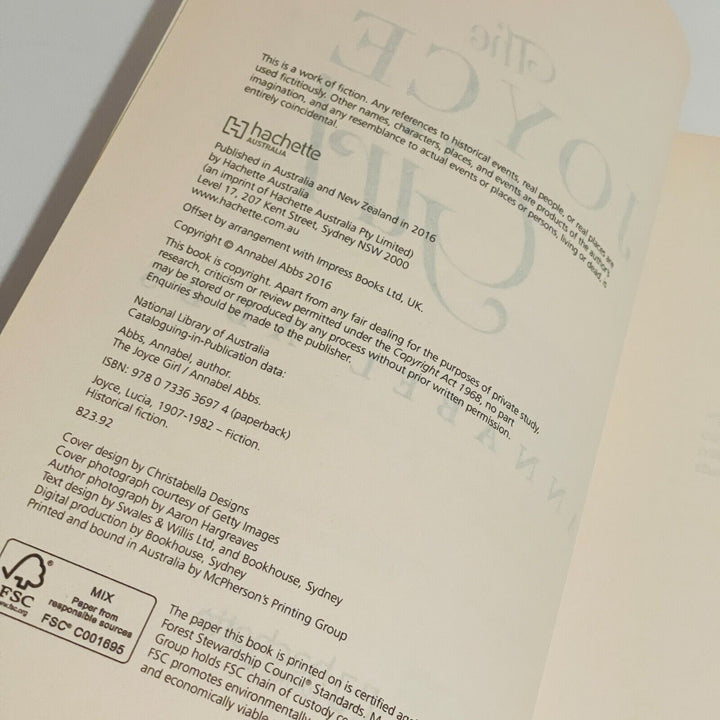 This is a work of fiction. Any references to historical events, real people, or real places are
used fictitiously. Other names, characters, places, and events are products of the authors
imagination, and any resemblance to actual events or places or persons, living or dead, is
entirely coincidental.
hachette
AUSTRALIA
Published in Australia and New Zealand in 2016
by Hachette Australia
(an imprint of Hachette Australia Pty Limited)
Level 17, 207 Kent Street, Sydney NSW 2000
www.hachette.com.au
Offset by arrangement with Impress Books Ltd, UK.
Copyright © Annabel Abbs 2016
This book is copyright. Apart from any fair dealing for the purposes of private study,
research, criticism or review permitted under the Copyright Act 1968, no part
may be stored or reproduced by any process without prior written permission.
Enquiries should be made to the publisher.
National Library of Australia
Cataloguing-in-Publication data:
Abbs, Annabel, author.
The Joyce Girl / Annabel Abbs.
ISBN: 978 0 7336 3697 4 (paperback)
Joyce, Lucia, 1907-1982 – Fiction.
Historical fiction.
823.92
Cover design by Christabella Designs
Cover photograph courtesy of Getty Images
Author photograph by Aaron Hargreaves
Text design by Swales & Willis Ltd, and Bookhouse, Sydney
Digital production by Bookhouse, Sydney
Printed and bound in Australia by McPherson's Printing Group
FSC
www.fsc.org
MIX
Paper from
responsible sources
FSC® C001695
The paper this book is printed on is certified
Forest Stewardship Council® Standards.
Group holds FSC chain of custody
FSC promotes environmentally
and economically viable
The
JOYCE
Girl